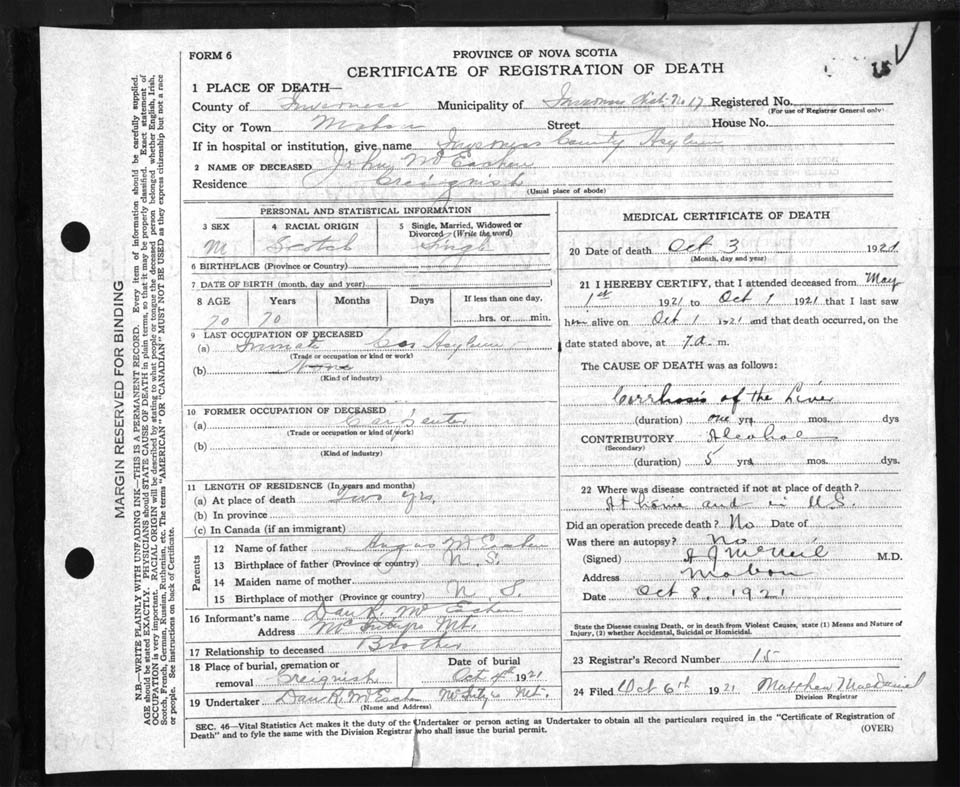 FORM 6
PROVINCE OF NOVA SCOTIA
CERTIFICATE OF REGISTRATION OF DEATH
1 PLACE OF DEATH—
County of Inverness Municipality of Inverness Dist. No 17 Registered No.
(For use of Registrar General only)
City or Town Mabou Street House No.
If in hospital or institution, give name Inverness County Asylum
2 NAME OF DECEASED John McEachen
Residence Craignish
(Usual place of abode)
PERSONAL AND STATISTICAL INFORMATION
3 SEX 4 RACIAL ORIGIN 5 Single, Married, Widowed or Divorced (Write the word)
M Scotch Single
6 BIRTHPLACE (Province or Country)
7 DATE OF BIRTH (month, day and year)
8 AGE Years Months Days If less than one day,
70 70 hrs. or min.
9 LAST OCCUPATION OF DECEASED
(a) Inmate Asylum
(Trade or occupation or kind or work)
(b) None
(Kind of industry)
10 FORMER OCCUPATION OF DECEASED
(a) Carpenter
(Trade or occupation or kind of work)
(b)
(Kind of industry)
11 LENGTH OF RESIDENCE (In years and months)
(a) At place of death Two yrs.
(b) In province
(c) In Canada (if an immigrant)
Parents
12 Name of father Angus McEachen
13 Birthplace of father (Province or country) N. S.
14 Maiden name of mother
15 Birthplace of mother (Province or country) N. S.
16 Informant's name Dan R. McEachen
Address McIntyre Mt.
17 Relationship to deceased Brother
18 Place of burial, cremation or removal Craignish Date of burial Oct 4th 1921
19 Undertaker Dan R. McEachen McIntyre Mt.
(Name and Address)
MEDICAL CERTIFICATE OF DEATH
20 Date of death Oct 3 1921
(Month, day and year)
21 I HEREBY CERTIFY, that I attended deceased from May
1st 1921 to Oct 1 1921 that I last saw
him alive on Oct 1 1921 and that death occurred, on the
date stated above, at 7 a. m.
The CAUSE OF DEATH was as follows:
Cirrhosis of the Liver
(duration) one yrs. mos. dys
CONTRIBUTORY Alcohol
(Secondary)
(duration) 5 yrs. mos. dys.
22 Where was disease contracted if not at place of death?
At home and in U.S.
Did an operation precede death? No Date of
Was there an autopsy? No
(Signed) A J McNeil M.D.
Address Mabou
Date Oct 8, 1921
State the Disease causing Death, or in death from Violent Causes, state (1) Means and Nature of Injury, (2) whether Accidental, Suicidal or Homicidal.
23 Registrar's Record Number 15
24 Filed Oct 6th 1921 Matthew MacDaniel
Division Registrar
SEC. 46—Vital Statistics Act makes it the duty of the Undertaker or person acting as Undertaker to obtain all the particulars required in the "Certificate of Registration of
Death" and to fyle the same with the Division Registrar who shall issue the burial permit. (OVER)
MARGIN RESERVED FOR BINDING
N.B.—WRITE PLAINLY WITH UNFADING INK—THIS IS A PERMANENT RECORD. Every item of information should be carefully supplied.
AGE should be stated EXACTLY. PHYSICIANS should STATE CAUSE OF DEATH in plain terms, so that it may be properly classified. Exact statement of
OCCUPATION is very important. RACIAL ORIGIN will be described by stating to what people or tongue the deceased person belonged whether English, Irish,
Scotch, French, German, Russian, Ruthenian, etc. The terms "AMERICAN" OR "CANADIAN" MUST NOT BE USED as they express citizenship but not a race
or people. See instructions on back of Certificate.